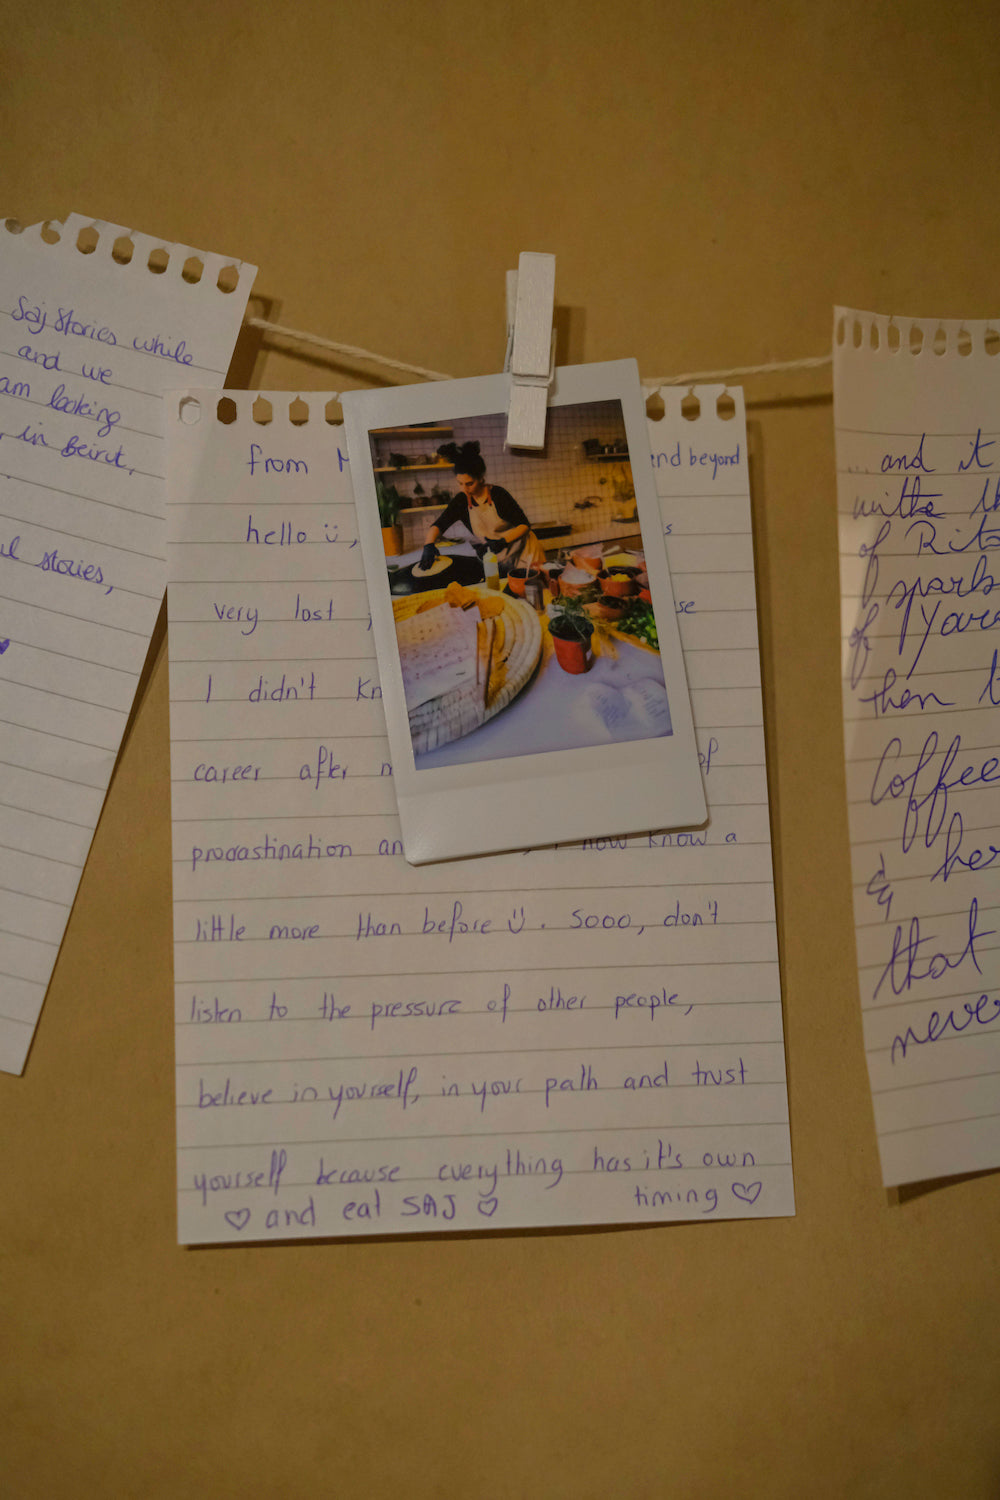 Saj Stories while
and we
am looking
in Beirut,
stories,
from
and beyond
hello ü,
s
very lost
se
I didn't
career after
of
procastination an
now know a
little more than before ü. Sooo, don't
listen to the pressure of other people,
believe in yourself, in your path and trust
yourself because everything has it's own
timing ♡
♡ and eat SAJ ♡
... and it
of Rita
sparks
of Yara
then
Coffee
& her
that
never